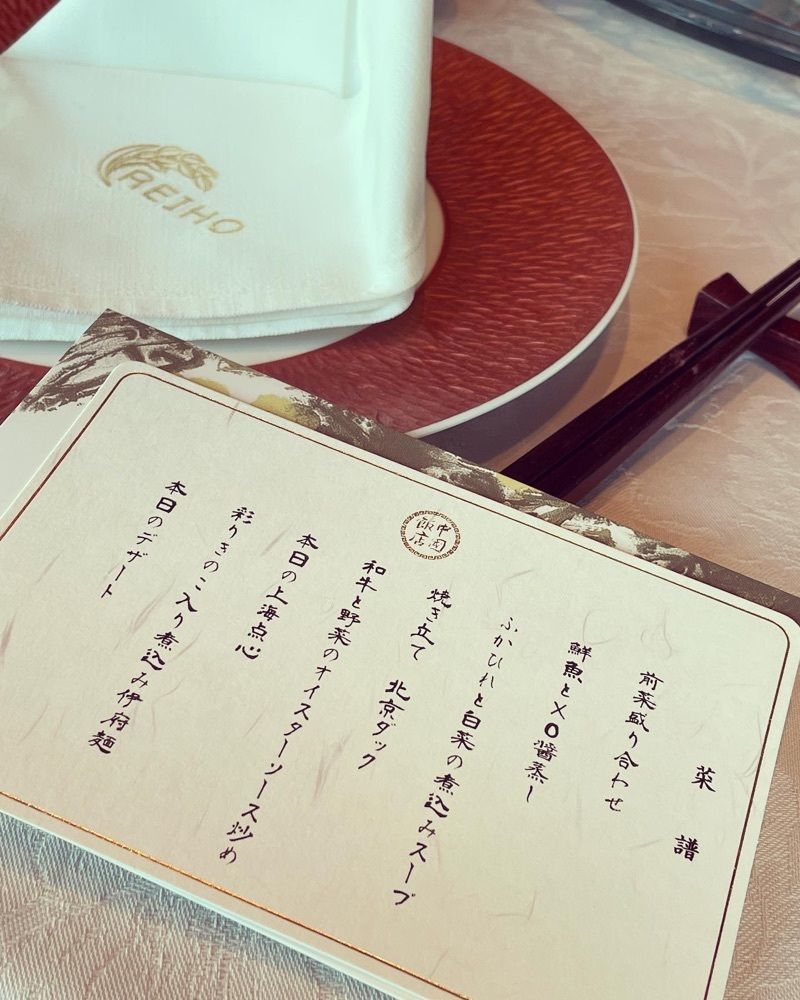 REIHO
中国
飯店
菜譜
前菜盛り合わせ
鮮魚とXO醤蒸し
ふかひれと白菜の煮込みスープ
焼き立て 北京ダック
和牛と野菜のオイスターソース炒め
本日の上海点心
彩りきのこ入り煮込み伊府麺
本日のデザート